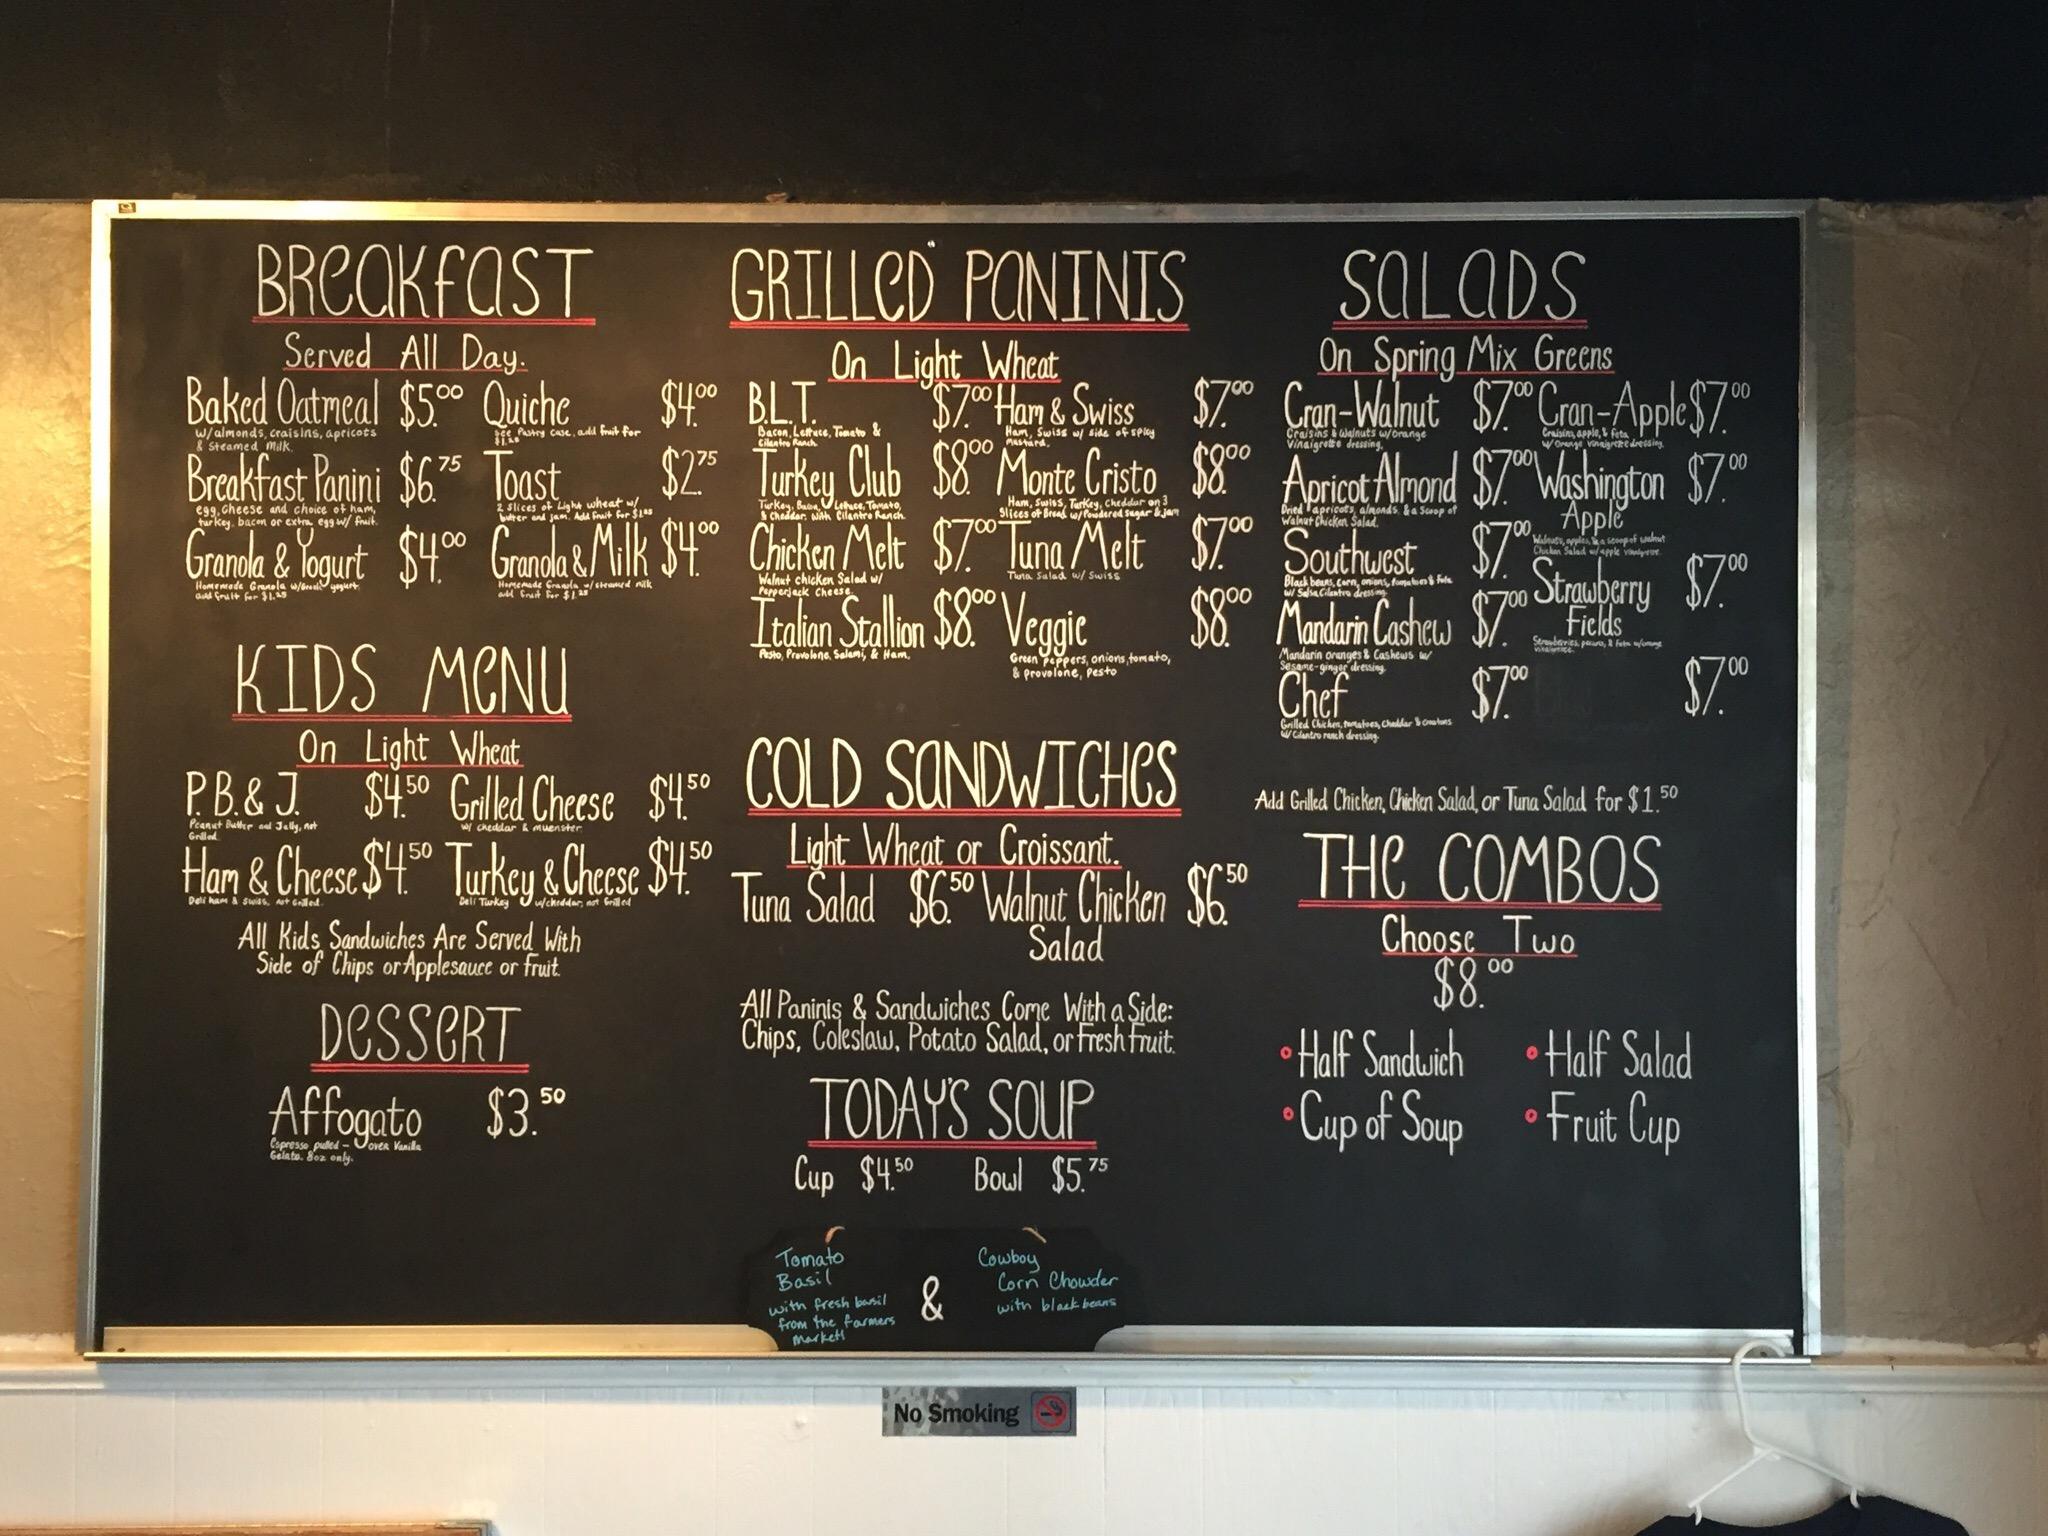 BREAKFAST
Served All Day.
Baked Oatmeal $5.00
w/almonds, craisins, apricots
& steamed milk.
Quiche $4.00
see Pastry case, add fruit for
$1.25
Breakfast Panini $6.75
egg, cheese and choice of ham,
turkey, bacon or extra egg w/ fruit.
Toast $2.75
2 slices of Light wheat w/
butter and jam. Add fruit for $1.25
Granola & Yogurt $4.00
Homemade Granola w/Greek yogurt.
add fruit for $1.25
Granola & Milk $4.00
Homemade Granola w/steamed milk
add fruit for $1.25
KIDS MENU
On Light Wheat
P.B. & J. $4.50
Peanut Butter and Jelly, not
Grilled.
Grilled Cheese $4.50
w/ cheddar & muenster
Ham & Cheese $4.50
Deli ham & swiss, not Grilled.
Turkey & Cheese $4.50
Deli Turkey w/cheddar, not Grilled
All Kids Sandwiches Are Served With
Side of Chips or Applesauce or Fruit.
DESSERT
Affogato $3.50
Espresso pulled - over Vanilla
Gelato. 8oz only.
GRILLED PANINIS
On Light Wheat
B.L.T. $7.00
Bacon, Lettuce, Tomato &
Cilantro Ranch.
Ham & Swiss $7.00
Ham, Swiss w/ side of spicy
mustard.
Turkey Club $8.00
Turkey, Bacon, Lettuce, Tomato,
& Cheddar. with Cilantro Ranch.
Monte Cristo $8.00
Ham, Swiss, Turkey, Cheddar on 3
Slices of Bread w/ Powdered sugar & jam
Chicken Melt $7.00
Walnut chicken Salad w/
Pepperjack Cheese.
Tuna Melt $7.00
Tuna Salad w/ Swiss
Italian Stallion $8.00
Pesto, Provolone, Salami, & Ham.
Veggie $8.00
Green Peppers, onions, tomato,
& provolone, Pesto
COLD SANDWICHES
Light Wheat or Croissant.
Tuna Salad $6.50
Walnut Chicken $6.50
Salad
All Paninis & Sandwiches Come With a Side:
Chips, Coleslaw, Potato Salad, or Fresh Fruit.
TODAY'S SOUP
Cup $4.50 Bowl $5.75
Tomato
Basil
with fresh basil
from the farmers
market!
&
Cowboy
Corn Chowder
with black beans
SALADS
On Spring Mix Greens
Cran-Walnut $7.00
Craisins & Walnuts w/Orange
Vinaigrette dressing.
Cran-Apple $7.00
Craisins, apple, & feta
w/ Orange Vinaigrette dressing.
Apricot Almond $7.00
Dried apricots, almonds, & a scoop of
Walnut Chicken Salad.
Washington $7.00
Apple
Walnuts, apples, & a scoop of walnut
Chicken Salad w/ apple
Southwest $7.00
Black beans, corn, onions, tomatoes & feta
w/ Salsa Cilantro dressing.
Strawberry $7.00
Fields
Strawberries, pecans, & feta w/orange
vinaigrette.
Mandarin Cashew $7.00
Mandarin oranges & Cashews w/
Sesame-ginger dressing.
Chef $7.00
Grilled Chicken, tomatoes, cheddar & croutons
w/ Cilantro ranch dressing.
$7.00
Add Grilled Chicken, Chicken Salad, or Tuna Salad for $1.50
THE COMBOS
Choose Two
$8.00
Half Sandwich
Half Salad
Cup of Soup
Fruit Cup
No Smoking